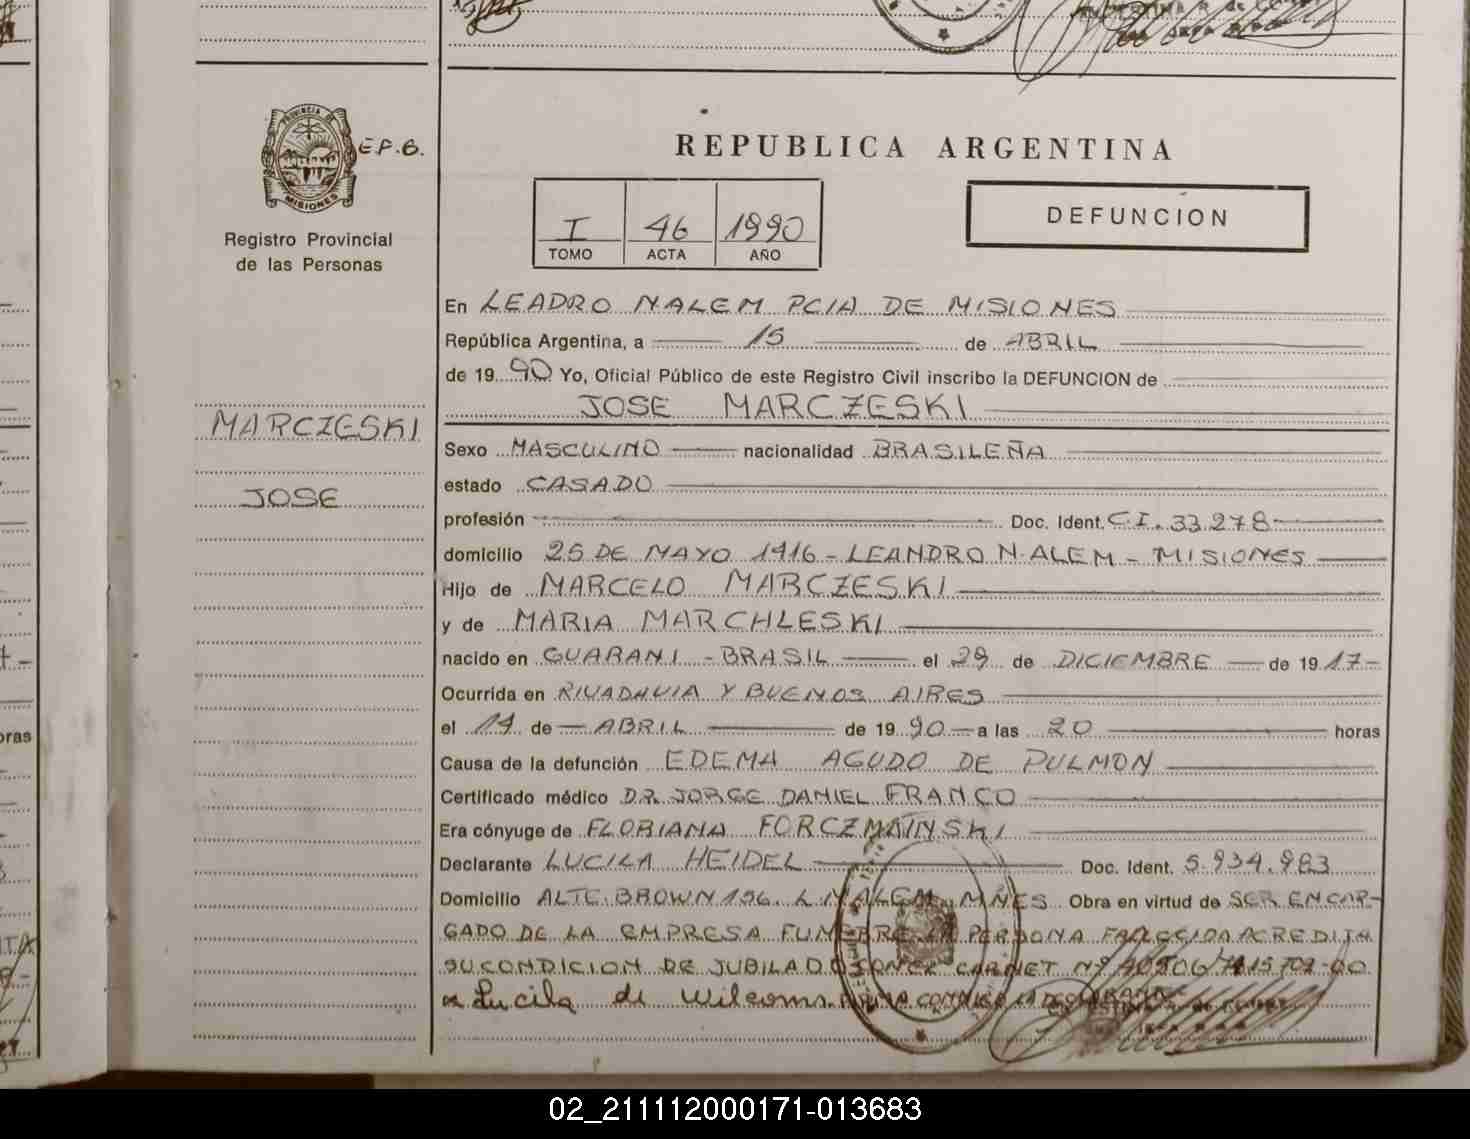 PROVINCIA DE
MISIONES
E.P.B.
Registro Provincial
de las Personas
MARCZESKI
JOSE
REPUBLICA ARGENTINA
I 46 1990
TOMO ACTA AÑO
DEFUNCION
En LEADRO NALEM PCIA DE MISIONES
República Argentina, a 15 de ABRIL
de 19 90 Yo, Oficial Público de este Registro Civil inscribo la DEFUNCION de
JOSE MARCZESKI
Sexo MASCULINO nacionalidad BRASILEÑA
estado CASADO
profesión Doc. Ident. C.I. 33.278
domicilio 25 DE MAYO 1416 - LEANDRO N. ALEM - MISIONES
Hijo de MARCELO MARCZESKI
y de MARIA MARCHLESKI
nacido en GUARANI - BRASIL el 29 de DICIEMBRE de 19 17-
Ocurrida en RIVADAVIA Y BUENOS AIRES
el 14 de ABRIL de 19 90 a las 20 horas
Causa de la defunción EDEMA AGUDO DE PULMON
Certificado médico DR. JORGE DANIEL FRANCO
Era cónyuge de FLORIANA FORCZMAINSKI
Declarante LUCILA HEIDEL Doc. Ident. 5.934.983
Domicilio ALTE. BROWN 156. L.N. ALEM. MNES Obra en virtud de SER ENCAR-
GADO DE LA EMPRESA FUNEBRE LA PERSONA FALLECIDA ACREDITA
SU CONDICION DE JUBILADO CON EL CARNET Nº
Lucila de FIRMA CONMIGO LA DECLARANTE
oras
02_211112000171-013683